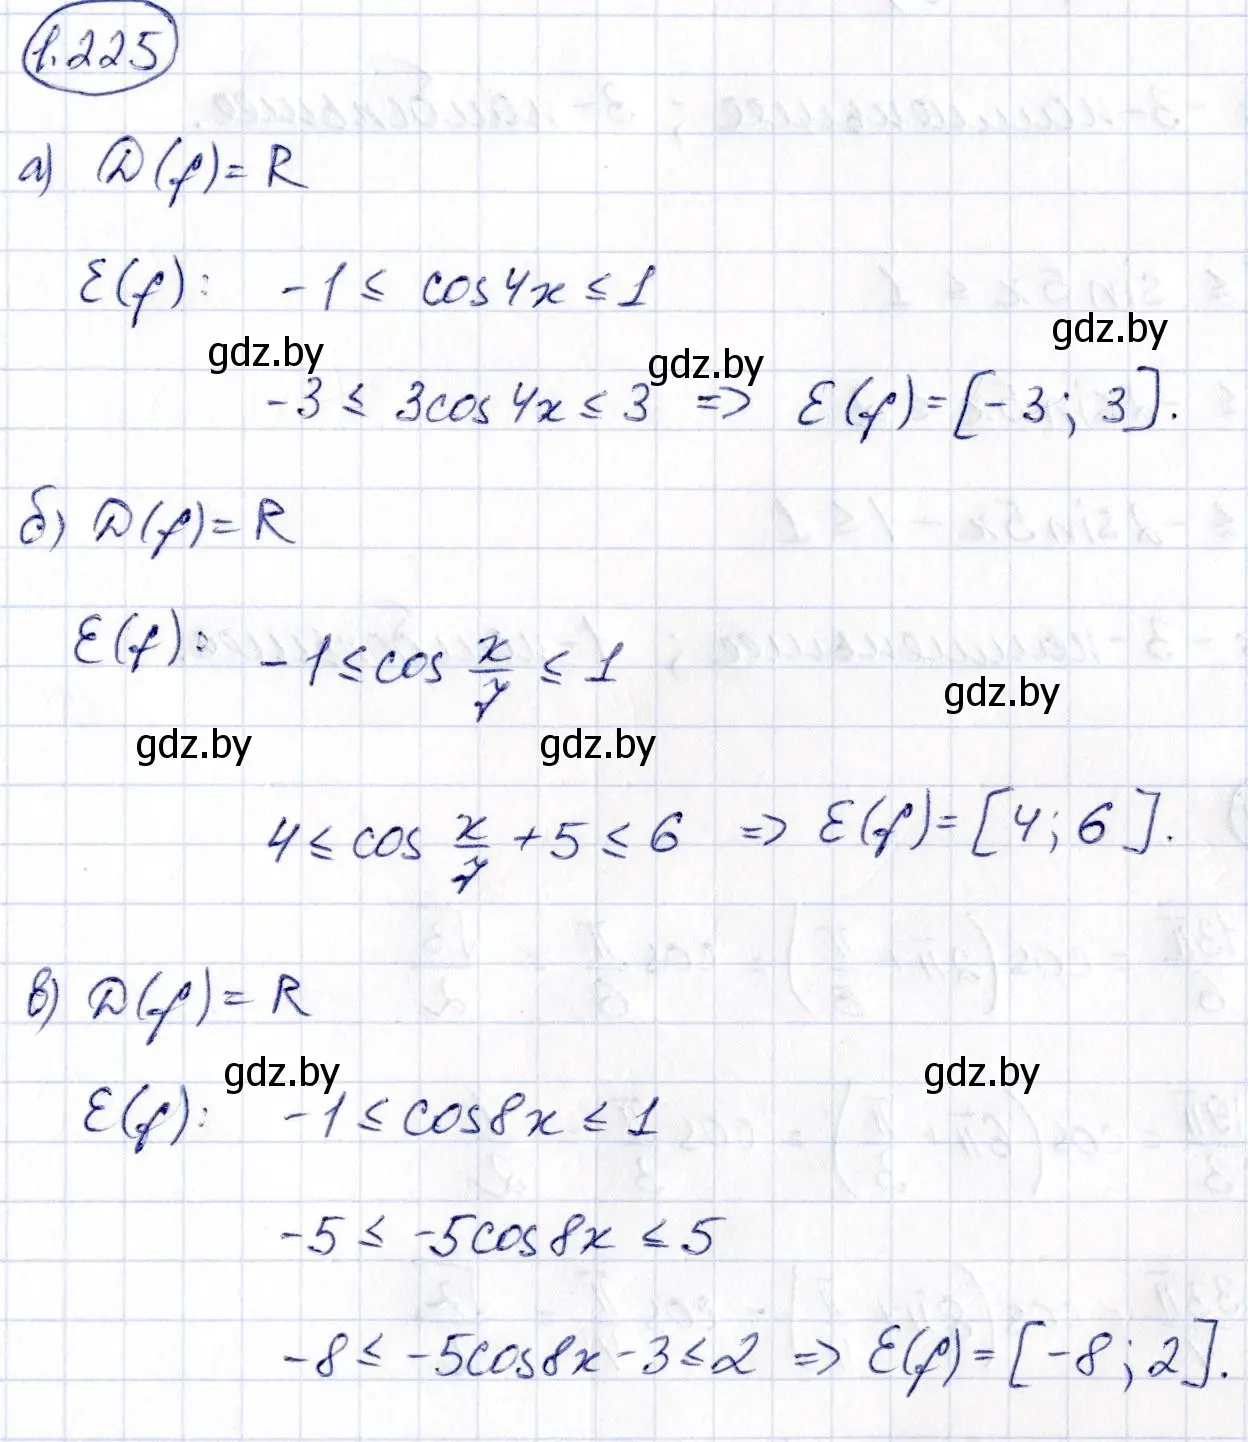 1.225
а) D(f) = R
E(f): -1 ≤ cos4x ≤ 1
gdz.by gdz.by gdz.by
-3 ≤ 3cos4x ≤ 3 => E(f) = [-3; 3].
б) D(f) = R
E(f): -1 ≤ cos x/7 ≤ 1
gdz.by gdz.by gdz.by
4 ≤ cos x/7 + 5 ≤ 6 => E(f) = [4; 6].
в) D(f) = R
gdz.by gdz.by
E(f): -1 ≤ cos8x ≤ 1
-5 ≤ -5cos8x ≤ 5
-8 ≤ -5cos8x - 3 ≤ 2 => E(f) = [-8; 2].